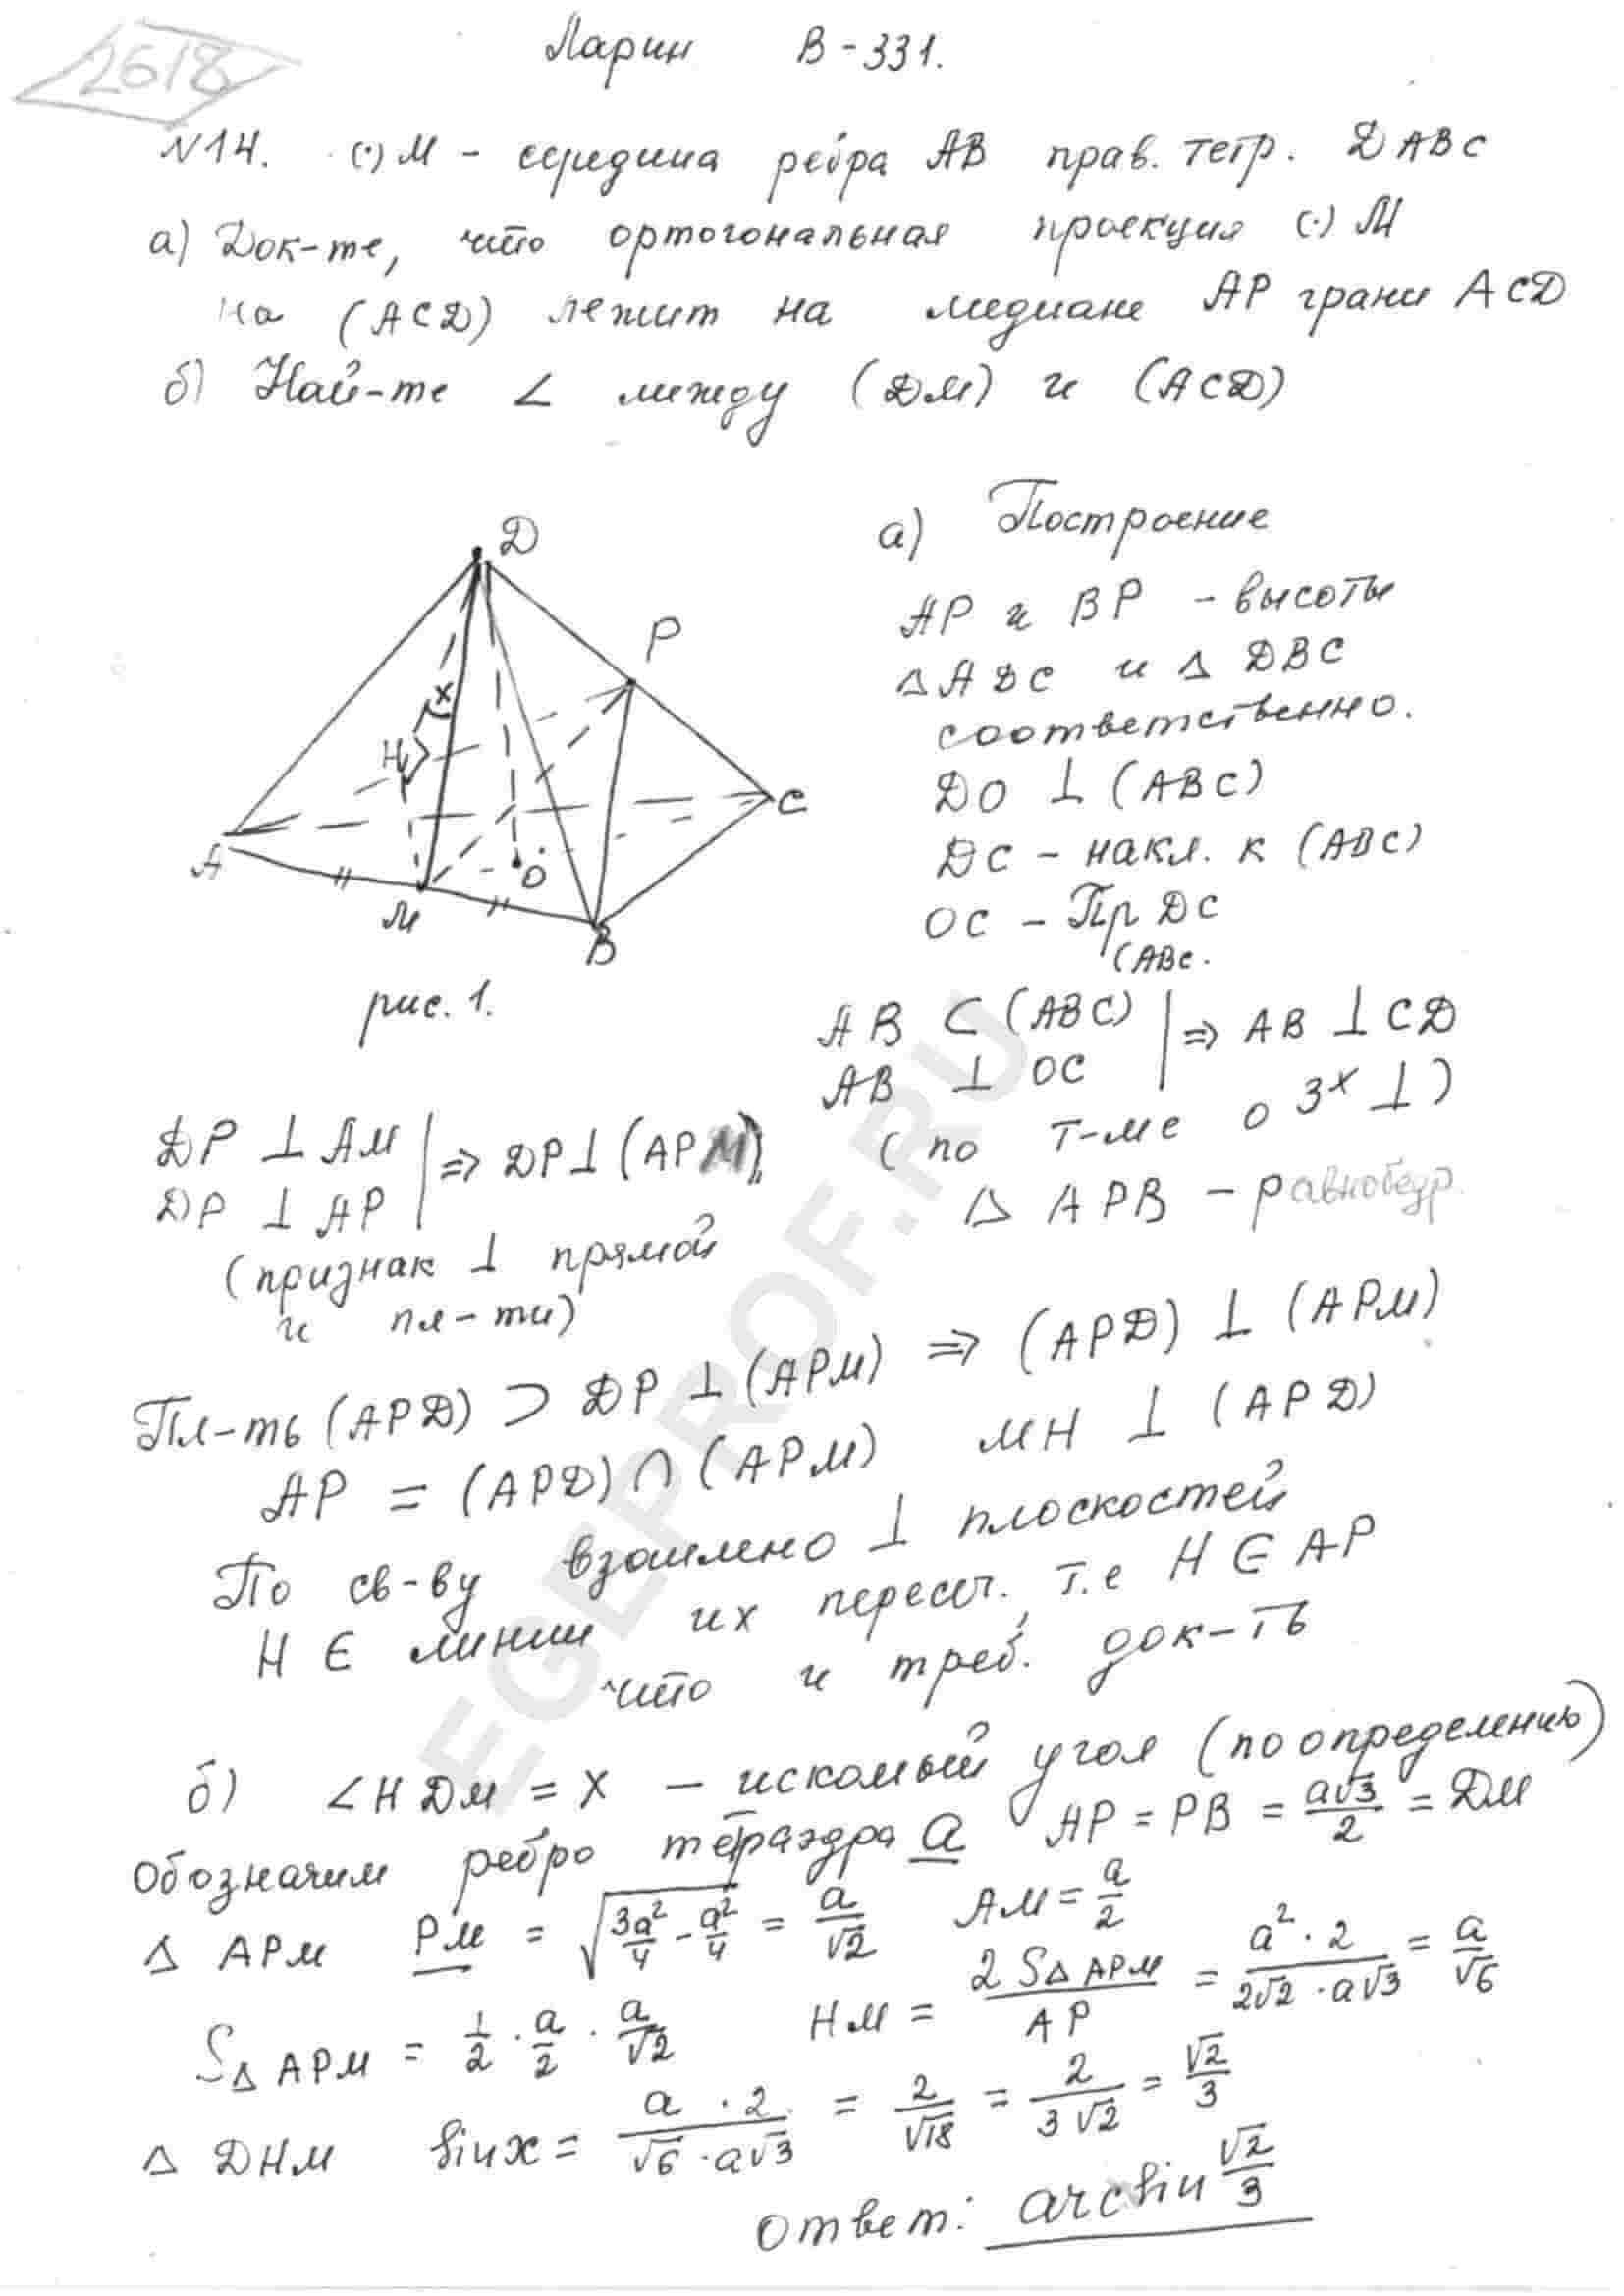 2618
Ларин В-331.
№14. (·) М - середина ребра АВ прав. тетр. DABC
а) Док-те, что ортогональная проекция (·) М
на (ACD) лежит на медиане АР грани ACD
б) Най-те ∠ между (DM) и (ACD)
D
P
x
H
A
C
O
M
B
рис. 1.
а) Построение
АР и ВР - высоты
△ADC и △DBC
соответственно.
DO ⊥ (ABC)
DC - накл. к (ABC)
OC - Пр DC
(ABC.
AB ⊂ (ABC) | ⇒ AB ⊥ CD
AB ⊥ OC
(по т-ме о 3х ⊥)
DP ⊥ AM | ⇒ DP ⊥ (APM)
DP ⊥ AP
(признак ⊥ прямой
и пл-ти)
△ APB - равнобедр.
Пл-ть (APD) ⊃ DP ⊥ (APM) ⇒ (APD) ⊥ (APM)
AP = (APD) ∩ (APM) MH ⊥ (APD)
По св-ву взаимно ⊥ плоскостей
H ∈ линии их пересеч., т.е H ∈ AP
что и треб. док-ть
б) ∠HDM = x - искомый угол (по определению)
Обозначим ребро тетраэдра a AP = PB = a√3/2 = DM
△ APM PM = √(3a²/4 - a²/4) = a/√2 AM = a/2
S△APM = 1/2 · a/2 · a/√2 HM = 2S△APM/AP = a²·2/(2√2·a√3) = a/√6
△ DHM sin x = a·2/(√6·a√3) = 2/√18 = 2/(3√2) = √2/3
Ответ: arcsin √2/3
EGEPROF.RU